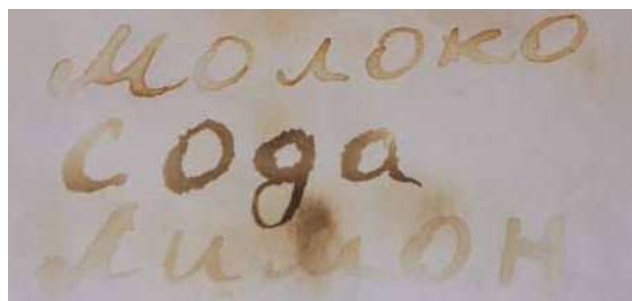 молоко
сода
лимон